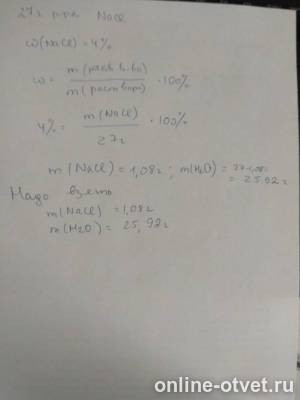 27г р-ра NaCl
ω(NaCl)=4%
ω = m(раств. в-ва) / m(раствора) · 100%
4% = m(NaCl) / 27г · 100%
m(NaCl)=1,08г ; m(H2O)= 27-1,08=
= 25.92г
Надо взять
m(NaCl) =1,08г
m(H2O)= 25,92г
online-otvet.ru